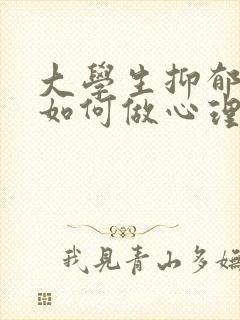 大學生抑郁
如何做心理
我見青山多嫵